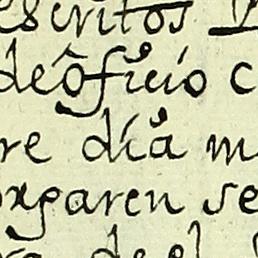 escritos
de ôficio c
re día m
orgaren se
de el